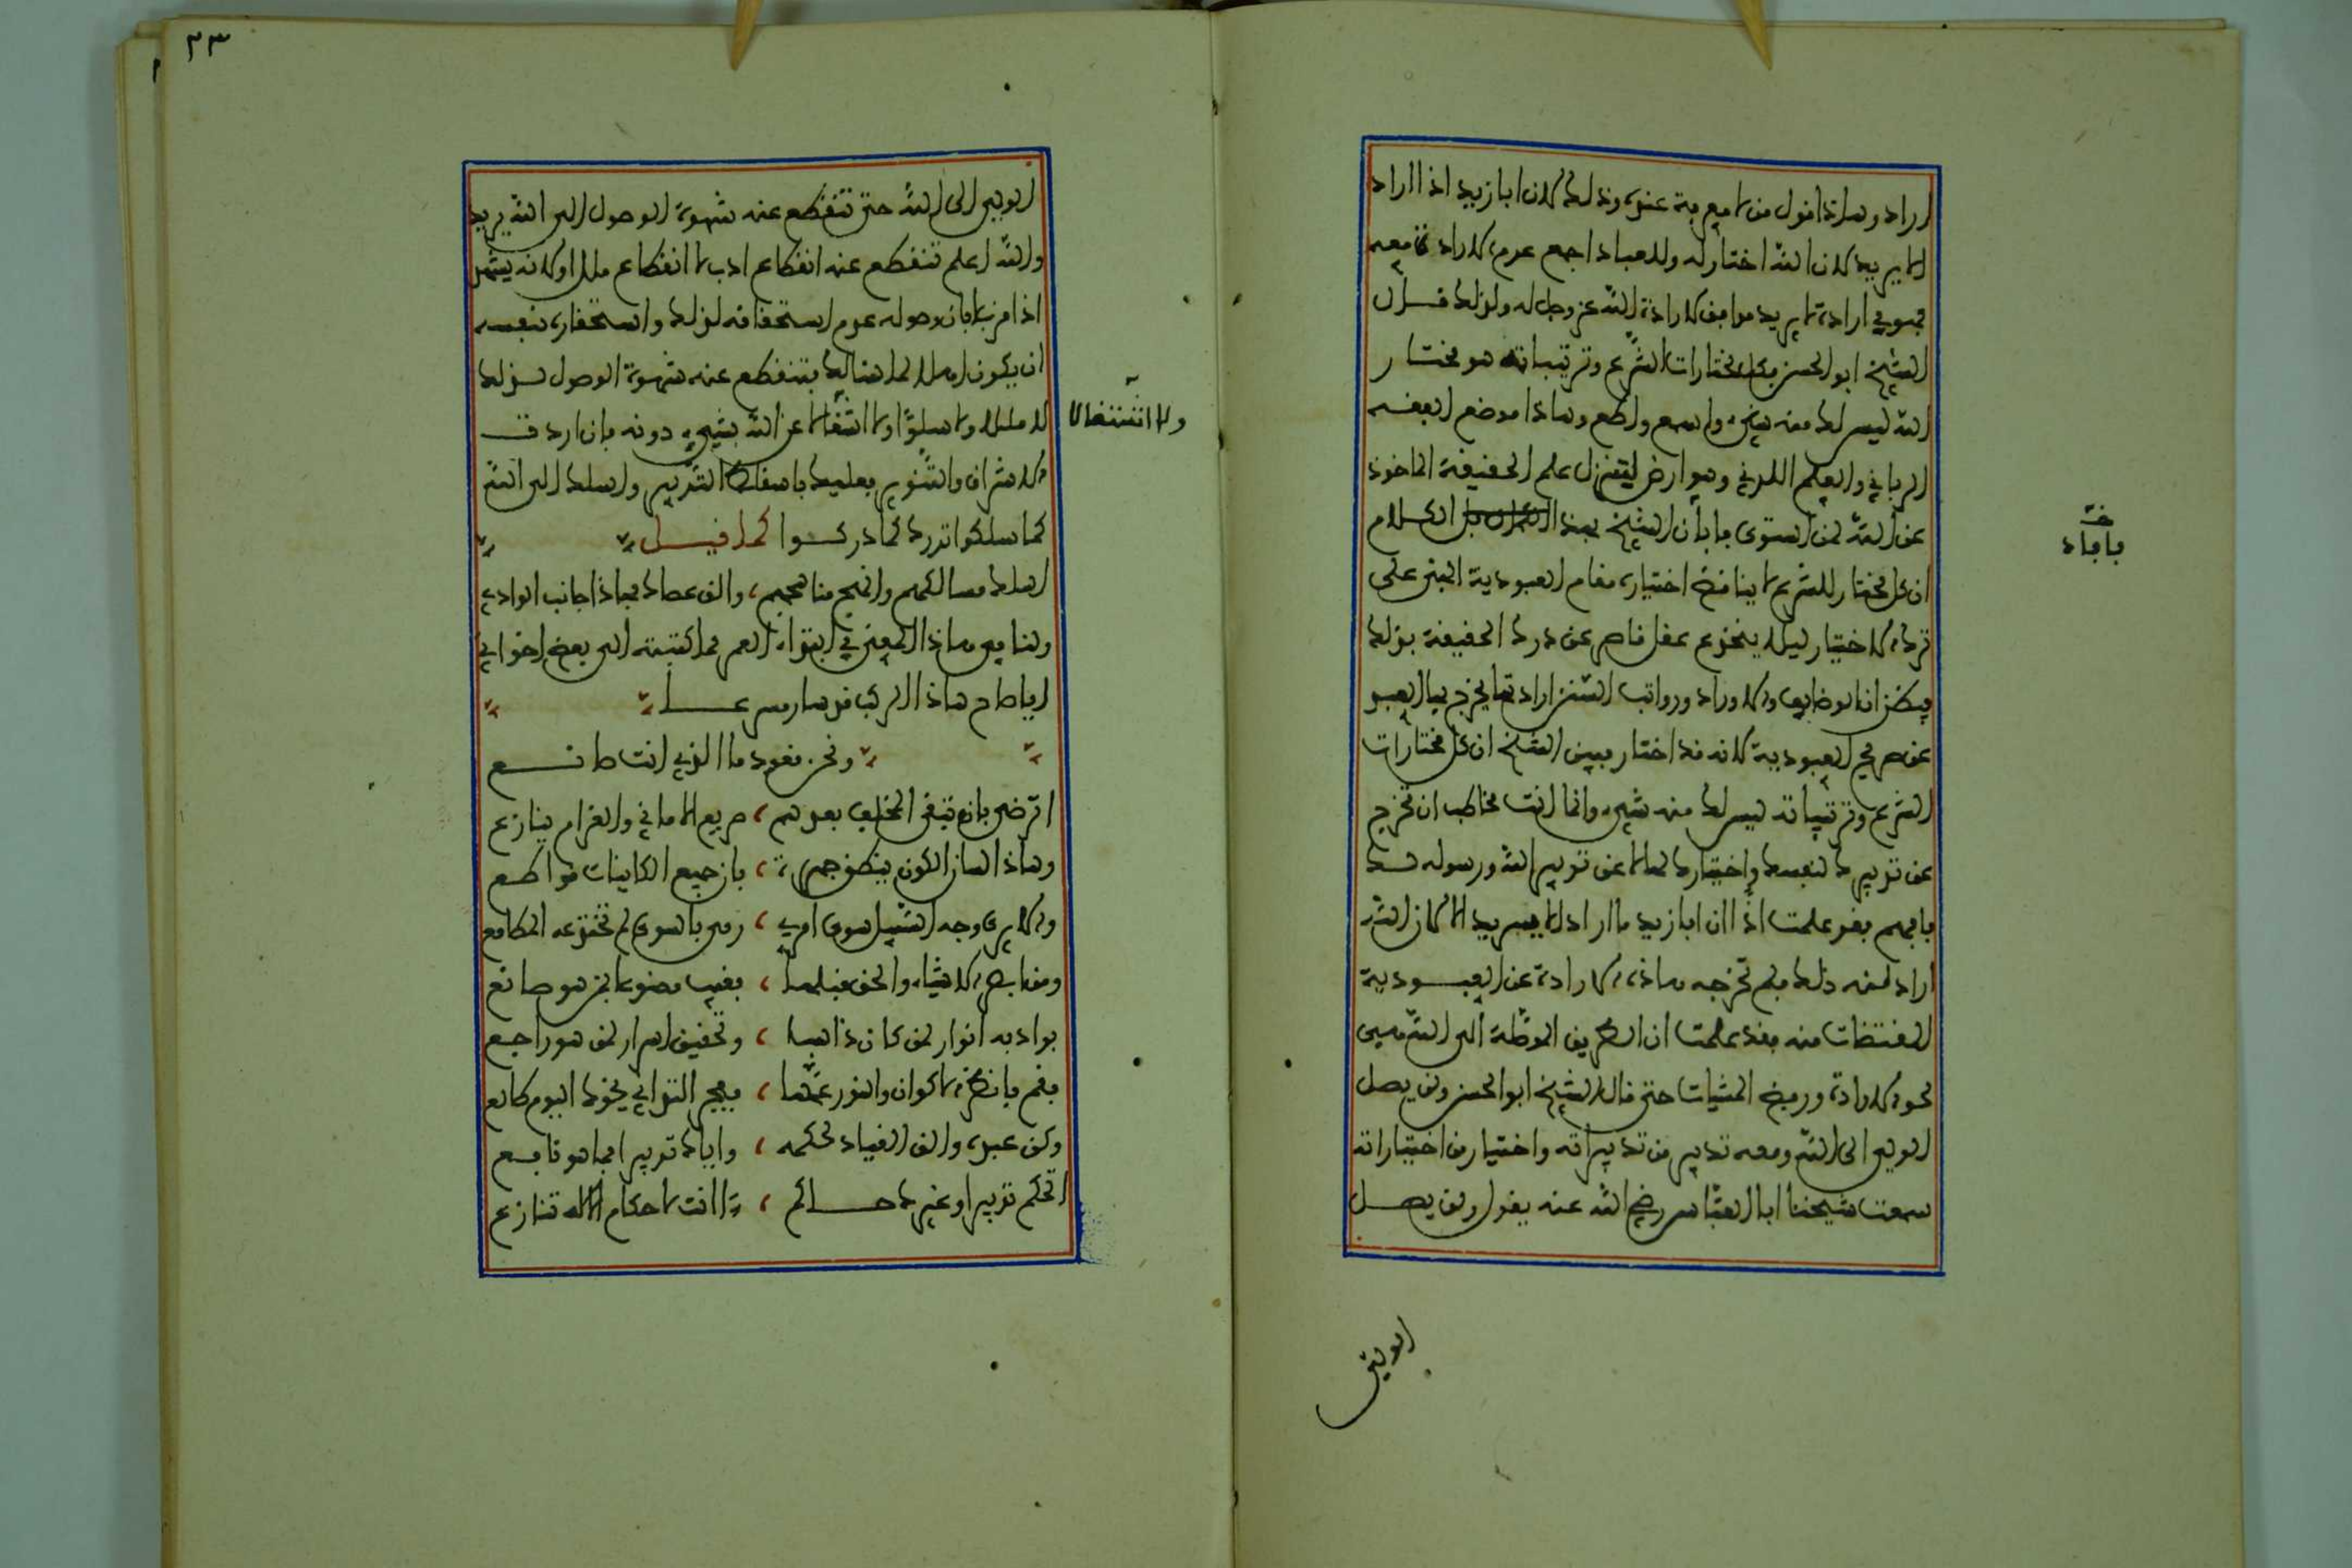 اراد وهاذا قول من لا معرفة عنده وذلك لان ابا يزيد اذا اراد
الا يريد لان الله اختار له وللعباد اجمع عدم الارادة معه
فهو في ارادته الا يريد موافق لارادة الله عز وجل له ولذلك قال
الشيخ ابو الحسن وكل مختارات الشرع وترتيباته هو مختار
الله ليس لك منه شيء واسمع واطع وهاذا موضع الفقه
الرباني والعلم اللدني وهو ارض لتنزل علم الحقيقة الماخوذ
عن الله لمن استوى فافاد الشيخ بهذا الكلام
ان كل مختار للشرع لا يناقض اختياره مقام العبودية المبني على
ترك الاختيار ليلا ينخدع عقل قاصر عن درك الحقيقة بذلك
فيظن ان الوظايف والاوراد ورواتب السنن ارادتها يخرج بها العبد
عن صريح العبودية لانه قد اختار فبين الشيخ ان كل مختارات
الشرع وترتيباته ليس لك منه شيء وانما انت مخاطب ان تخرج
عن تدبيرك لنفسك واختيارك لها لا عن تدبير الله ورسوله لك
فافهم فقد علمت اذا ان ابا يزيد ما اراد الا يريد الا لان الله
اراد منه ذلك فلم تخرجه هاذه الارادة عن العبودية
المقتضات منه فقد علمت ان الطريق الموصلة الى الله هي
محو الارادة ورفض المشيات حتى قال الشيخ ابو الحسن ولن يصل
الولي الى الله ومعه تدبير من تدبيراته واختيار من اختياراته
سمعت شيخنا ابا العباس رضي الله عنه يقول ولن يصل
خـ
فافاد
الولي
٢٣
الولي الى الله حتى تنقطع عنه شهوة الوصول الى الله يريد
والله اعلم تنقطع عنه انقطاع ادب لا انقطاع ملل او لانه يشهد
اذا قرب ابان وصوله عدم استحقاقه لذلك واستحقاره لنفسه
ان يكون اهلا لما هنالك فتنقطع عنه شهوة الوصول لذلك
لا مللا ولا سلوا ولا اشتغالا عن الله بشيء دونه فان اردت
الاشراق والتنوير فعليك باسقاط التدبير واسلك الى الله
كما سلكوا تدرك كما ادركوا كما قيل
اسلك مسالكهم وانهج مناهجهم، والق عصاك فهاذا جانب الوادي
ولنا في هاذا المعنى في ابتداء العمر مما كتبته الى بعض اخواني
ايا صاح هاذا الركب قد سار مسرعا
ونحن قعود ما الذي انت صانع
اترضى بان تبقى المخلف بعدهم، صريع الاماني والغرام ينازع
وهاذا لسان الكون ينطق جهرة، بان جميع الكاينات قواطع
والا يرى وجه السبيل سوى امرئ، رمى بالسوى لم تختدعه المطامع
ومن ابصر الاشياء والحق قبلها، فغيب مصنوعا بمن هو صانع
بواد به انوار لمن كان ذاهبا، وتحقيق اسرار لمن هو راجع
فقم وانظر الاكوان والنور عمها، ففجر التداني نحوك اليوم طالع
وكن عبده والق القياد لحكمه، واياك تدبيرا فما هو نافع
اتحكم تدبيرا وغيرك حاكم، اانت لاحكام الاله تنازع
ولا اشتغالا